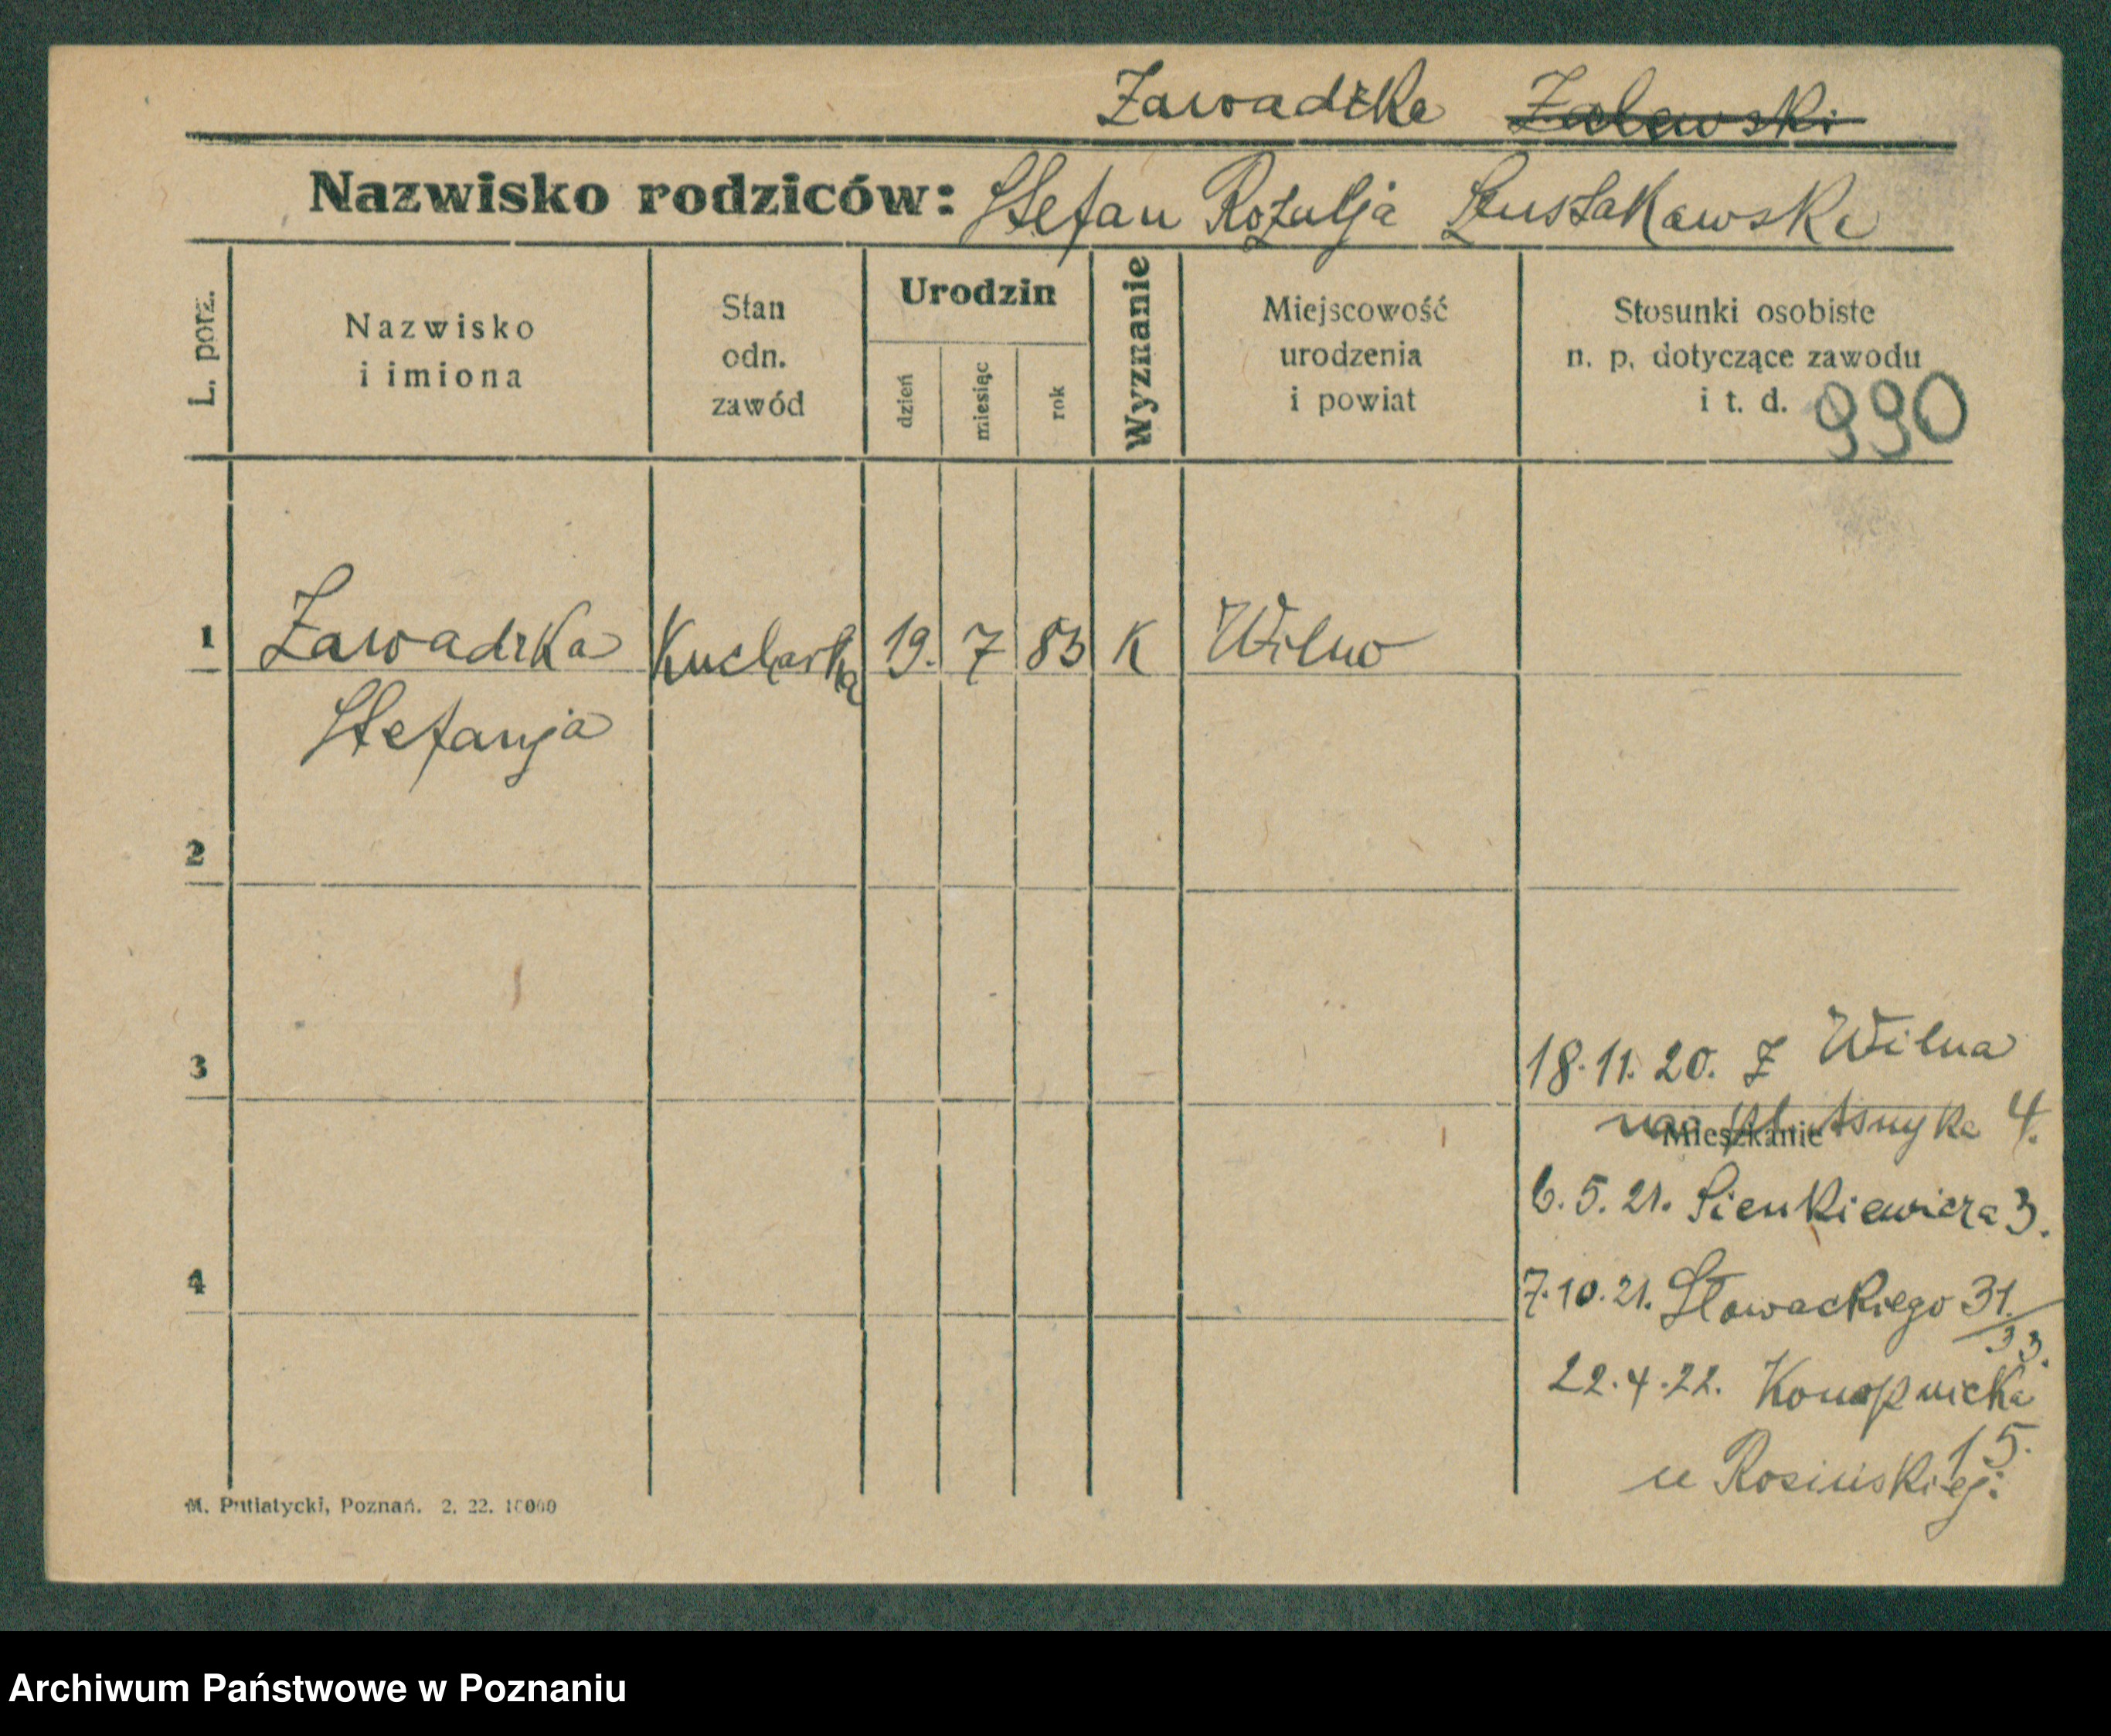 Zawadzka Zalewski
Nazwisko rodziców: Stefan Rozalja
L. porz.
Nazwisko
i imiona
Stan
odn.
zawód
Urodzin
dzień
miesiąc
rok
Wyznanie
Miejscowość
urodzenia
i powiat
Stosunki osobiste
n. p. dotyczące zawodu
i t. d. 990
1 Zawadzka Kucharka 19. 7 83 K Wilno
Stefanja
2
3
18.11.20. z Wilna
Asnyka 4.
Mieszkanie
6.5.21. Sienkiewicza 3.
4
7.10.21. Słowackiego 31/33.
22.4.22. Konopnicka
15.
u Rosińskiej.
M. Putiatycki, Poznań. 2. 22. 10000
Archiwum Państwowe w Poznaniu